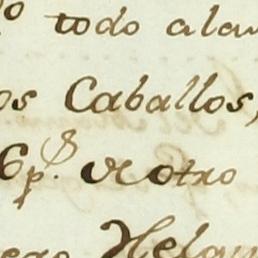 todo alau
os Caballos,
6 p.s de otro
Helau